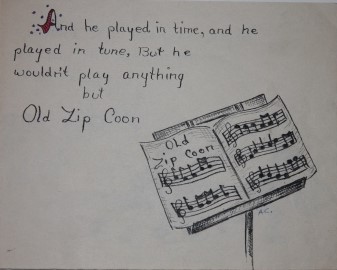 And he played in time, and he
played in tune, But he
wouldn't play anything
but
Old Zip Coon
Old
Zip Coon
A.C.